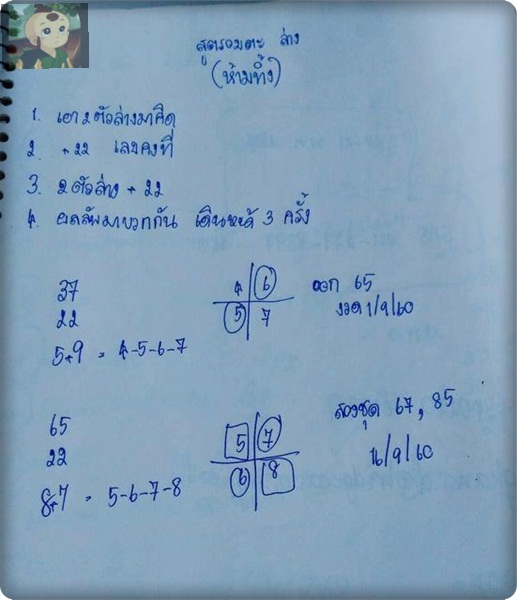 สูตรอมตะ ล่าง
(ห้ามทิ้ง)
1. เอา 2 ตัวล่างมาคิด
2. +22 เลขคงที่
3. 2 ตัวล่าง + 22
4. ผลลัพมาบวกกัน เดินหน้า 3 ครั้ง
37
22
5+9 = 4-5-6-7
4 6
5 7
ออก 65
งวด 1/9/60
65
22
8+7 = 5-6-7-8
5 7
6 8
สองชุด 67, 85
16/9/60